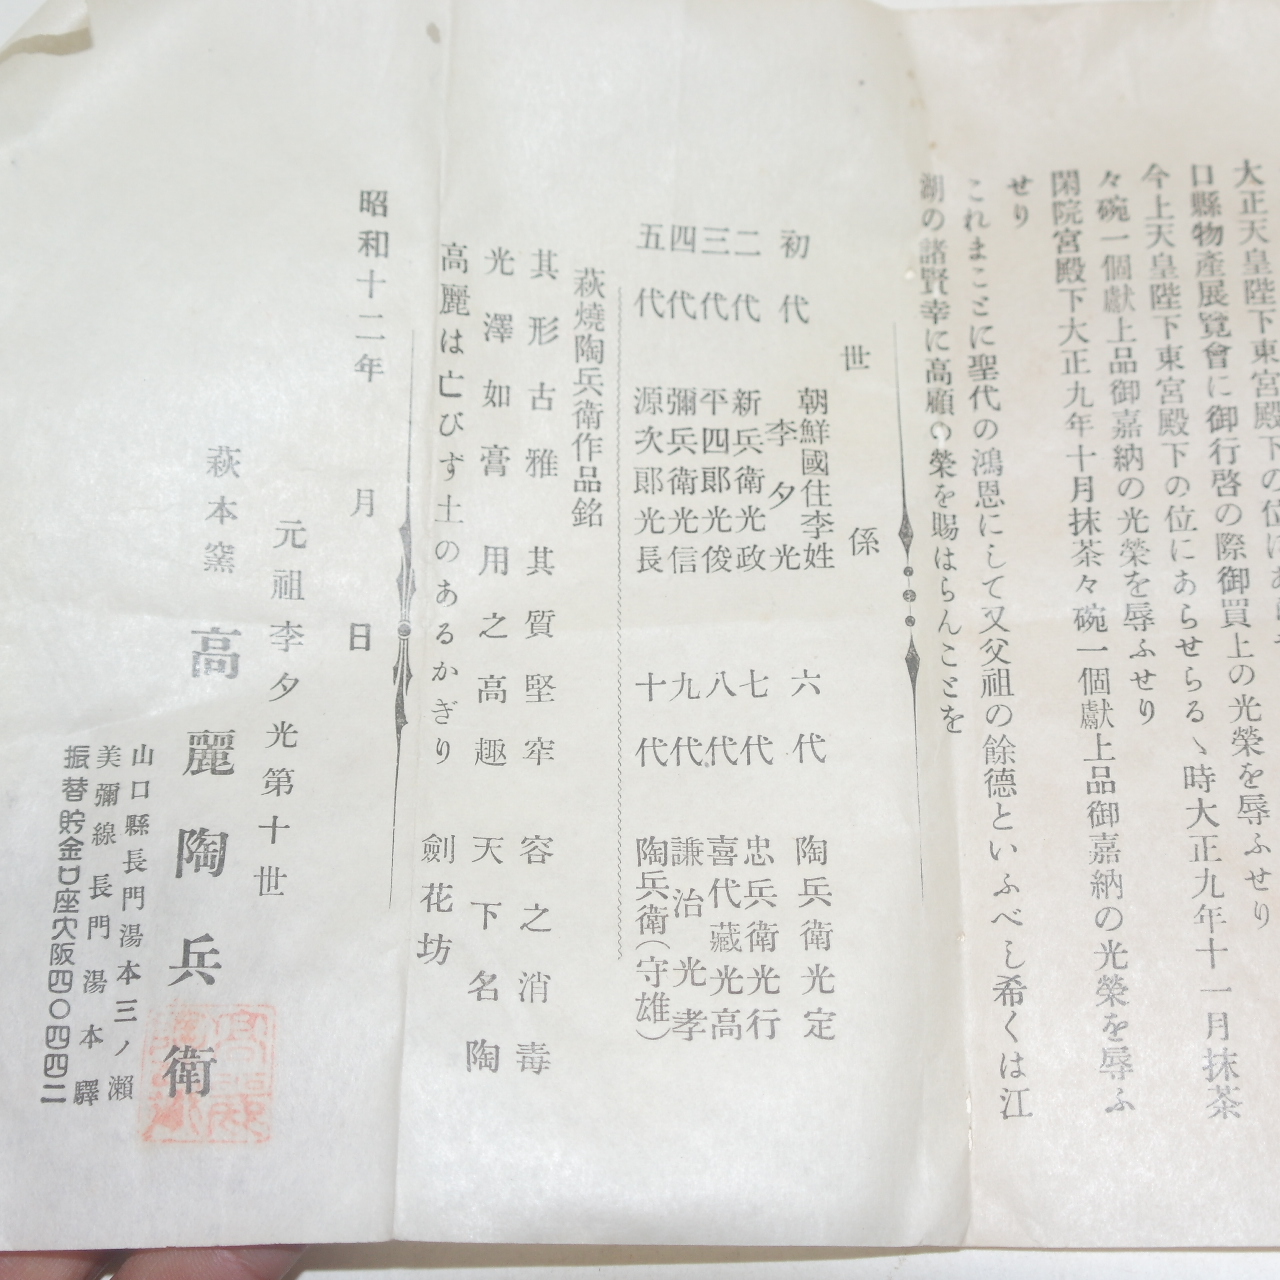 大正天皇陛下東宮殿下の位にあらせ
口縣物產展覽會に御行啓の際御買上の光榮を辱ふせり
今上天皇陛下東宮殿下の位にあらせらるゝ時大正九年十一月抹茶
々碗一個獻上品御嘉納の光榮を辱ふせり
閑院宮殿下大正九年十月抹茶々碗一個獻上品御嘉納の光榮を辱ふ
せり
これまことに聖代の鴻恩にして又父祖の餘德といふべし希くは江
湖の諸賢幸に高顧の榮を賜はらんことを
世係
初代 朝鮮國住李姓 李夕光 六代 陶兵衛光定
二代 新兵衛光政 七代 忠兵衛光行
三代 平四郎光俊 八代 喜代藏光高
四代 彌兵衛光信 九代 謙治光孝
五代 源次郎光長 十代 陶兵衛(守雄)
萩燒陶兵衛作品銘
其形古雅 其質堅牢 容之消毒
光澤如膏 用之高趣 天下名陶
高麗は亡びず土のあるかぎり 劍花坊
昭和十二年 月 日
元祖李夕光第十世
萩本窯 高麗陶兵衛
山口縣長門湯本三ノ瀨
美彌線長門湯本驛
振替貯金口座大阪四〇四四二